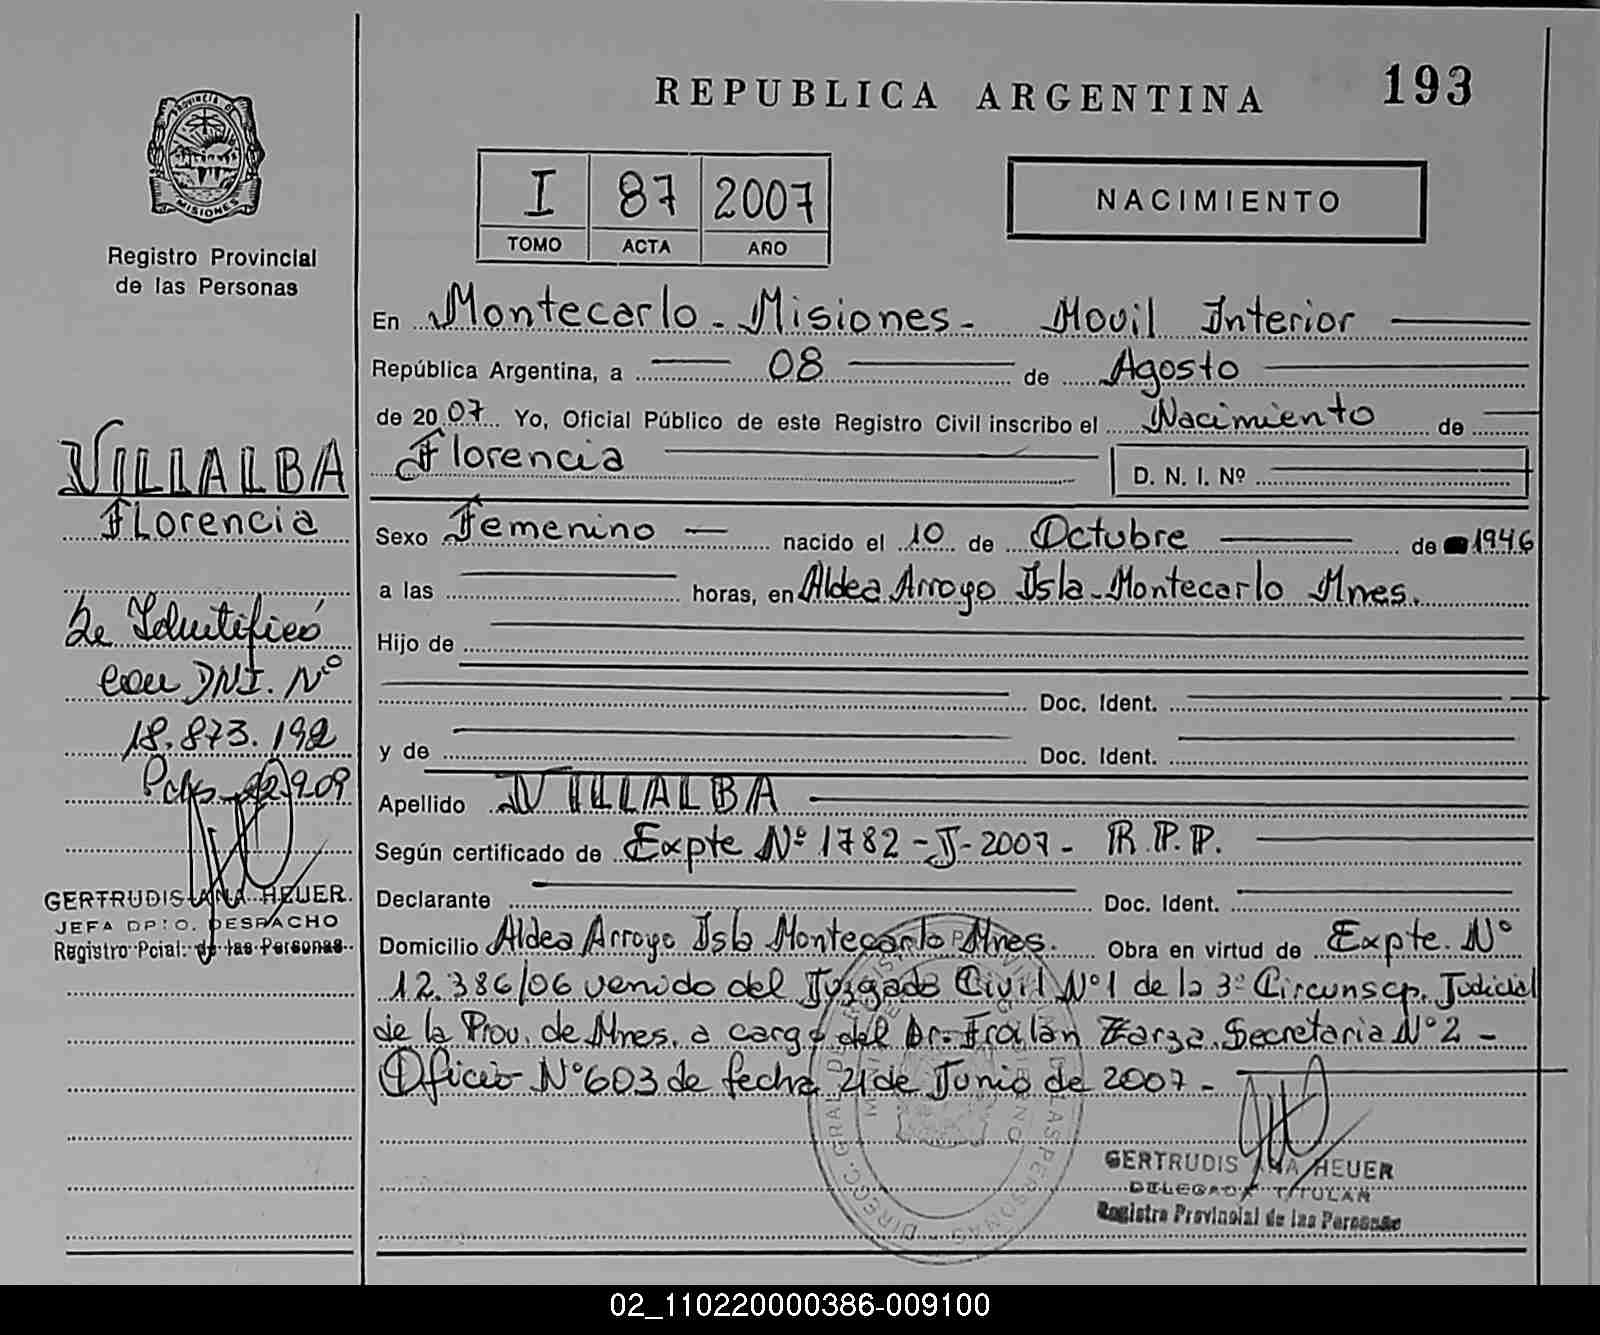 REPUBLICA ARGENTINA 193
PROVINCIA DE
MISIONES
Registro Provincial
de las Personas
I 87 2007
TOMO ACTA AÑO
NACIMIENTO
En Montecarlo - Misiones - Movil Interior
República Argentina, a 08 de Agosto
de 2007 Yo, Oficial Público de este Registro Civil inscribo el Nacimiento de
Florencia D. N. I. Nº
Sexo Femenino nacido el 10 de Octubre de 1946
a las horas, en Aldea Arroyo Isla - Montecarlo Mnes.
Hijo de
Doc. Ident.
y de Doc. Ident.
Apellido VILLALBA
Según certificado de Expte Nº 1782 - J - 2007 - R. P. P.
Declarante Doc. Ident.
Domicilio Aldea Arroyo Isla Montecarlo Mnes. Obra en virtud de Expte. Nº
12.386/06 venido del Juzgado Civil Nº1 de la 3º Circunscp. Judicial
de la Prov. de Mnes. a cargo del Dr. Froilan Zarza Secretaria Nº 2 -
Oficio Nº 603 de fecha 21 de Junio de 2007 -
GERTRUDIS ANA HEUER
DELEGADA TITULAR
Registro Provincial de las Personas
VILLALBA
Florencia
Se Identificó
con DNI. Nº
18.873.192
GERTRUDIS ANA HEUER
JEFA DPTO. DESPACHO
Registro Pcial. de las Personas
02_110220000386-009100